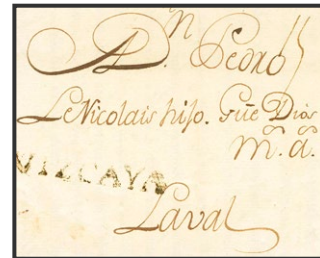 A Dⁿ. Pedro
LeNicolais hijo. Gũe Dios
m. ã.
VIZCAYA
Laval